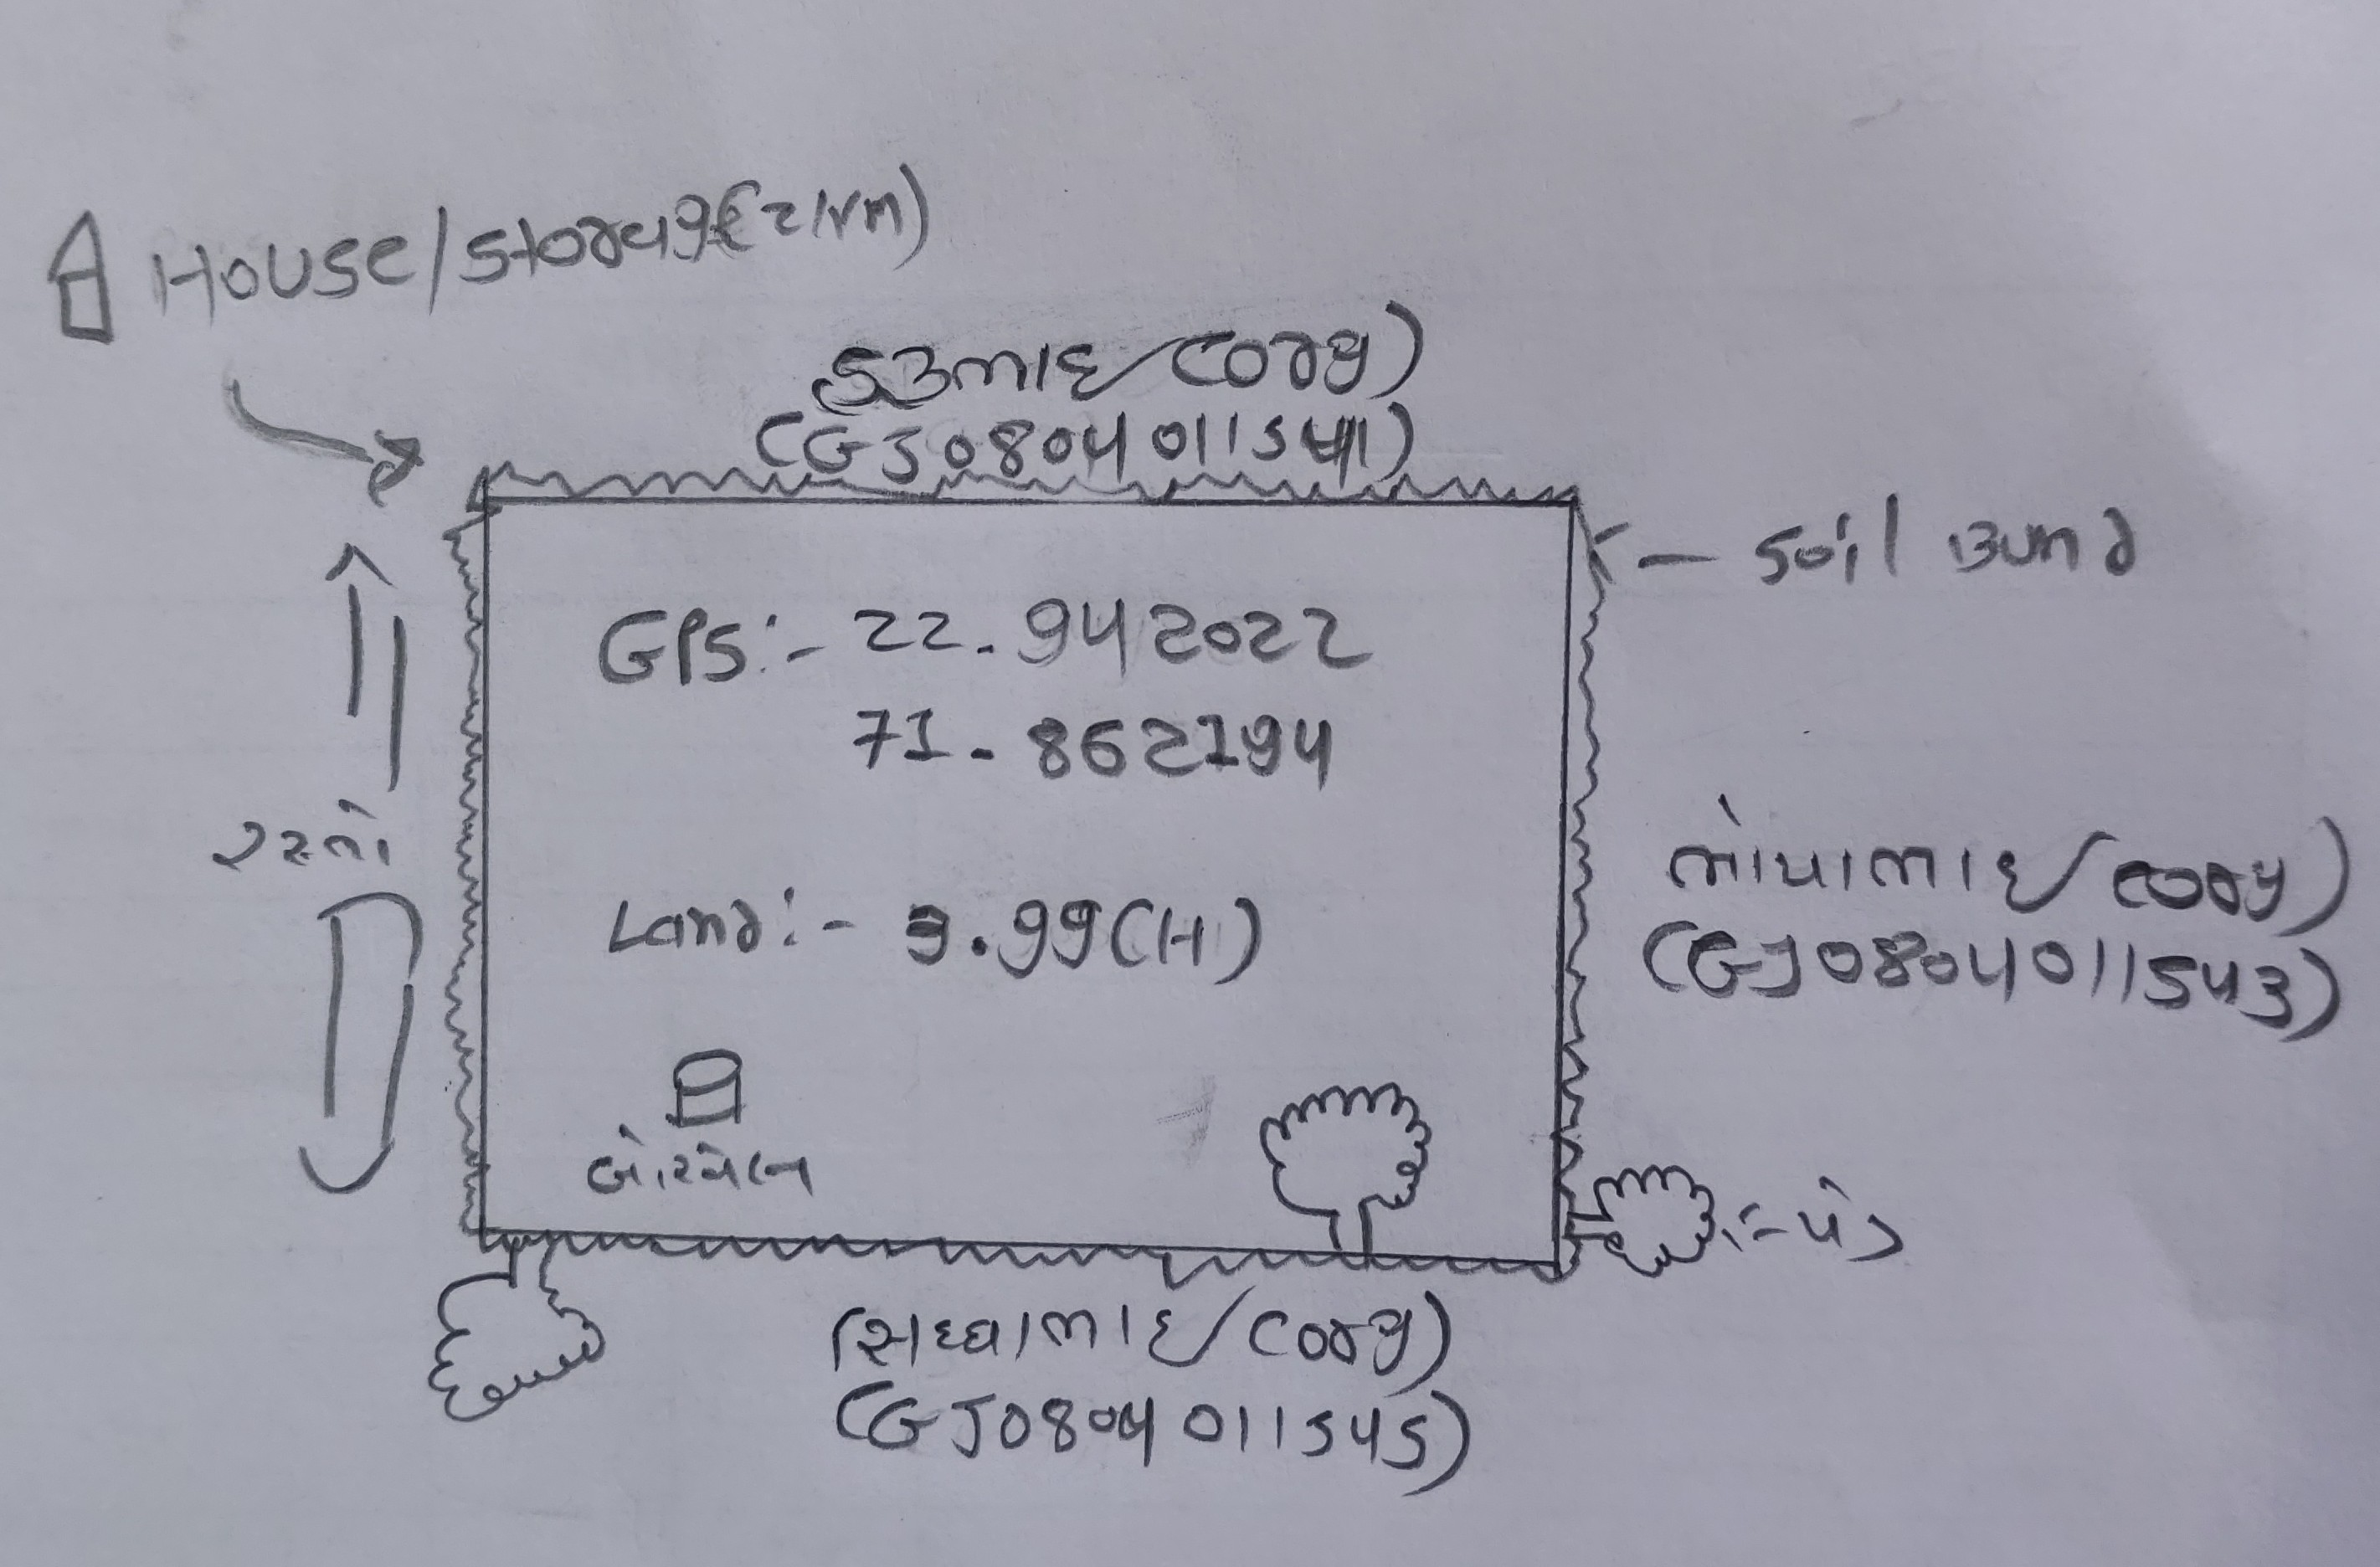 House/Storage(21Vm)
(Cory)
(GJ0804011541)
Soil Bund
GPS:- 22.942022
71.862194
રસ્તો
Land:- 3.99(H)
ભોપાભાઈ (Cory)
(GJ0804011543)
બોરવેલ
:- પેડ
સિધ્ધાભાઈ (Cory)
(GJ0804011545)